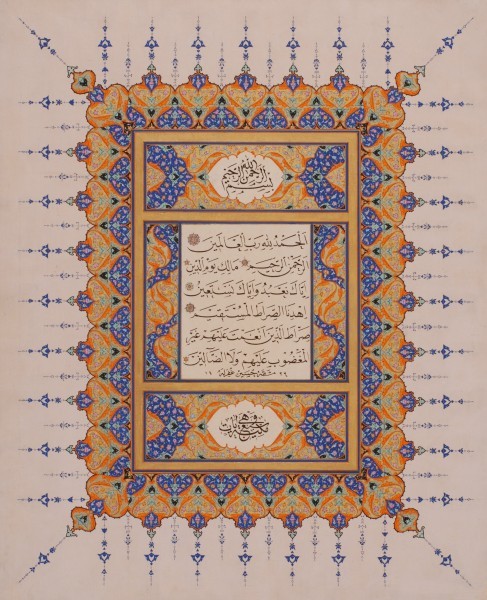 بسم الله الرحمن الرحيم
الحمد لله رب العالمين
الرحمن الرحيم مالك يوم الدين
إياك نعبد وإياك نستعين
اهدنا الصراط المستقيم
صراط الذين أنعمت عليهم غير
المغضوب عليهم ولا الضالين
وهي سبع آيات